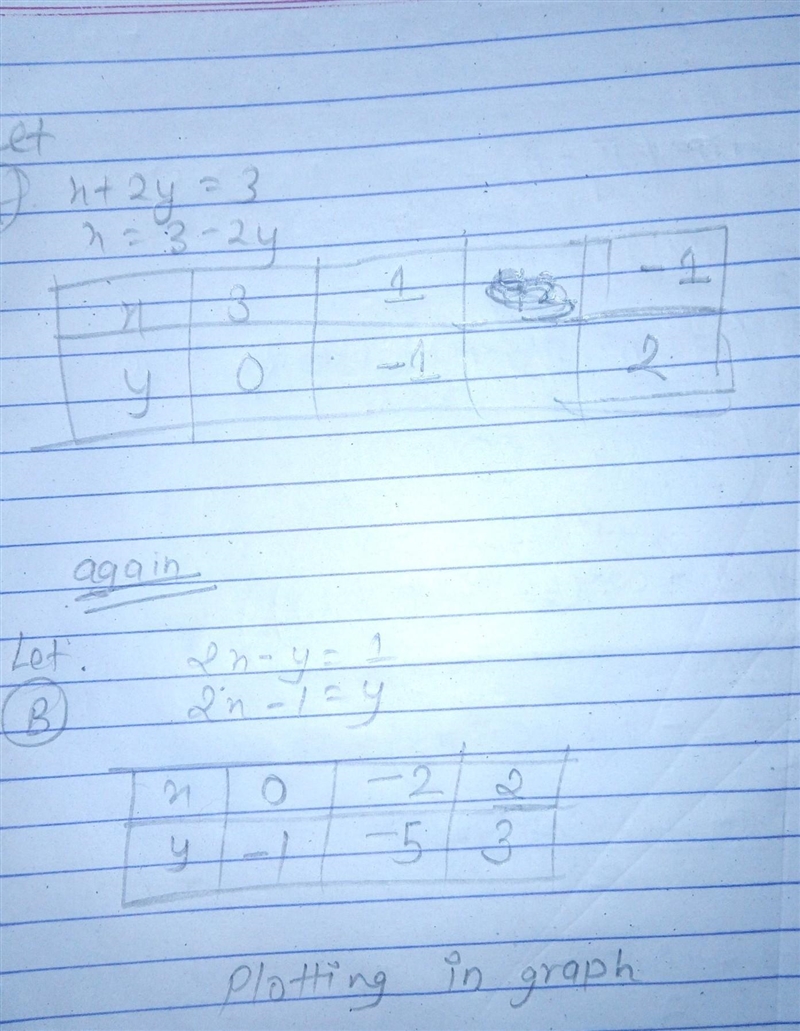 et
x + 2y = 3
x = 3 - 2y
x 3 1 -1
y 0 -1 2
again
Let.
2x - y = 1
B
2x - 1 = y
x 0 -2 2
y -1 -5 3
Plotting in graph